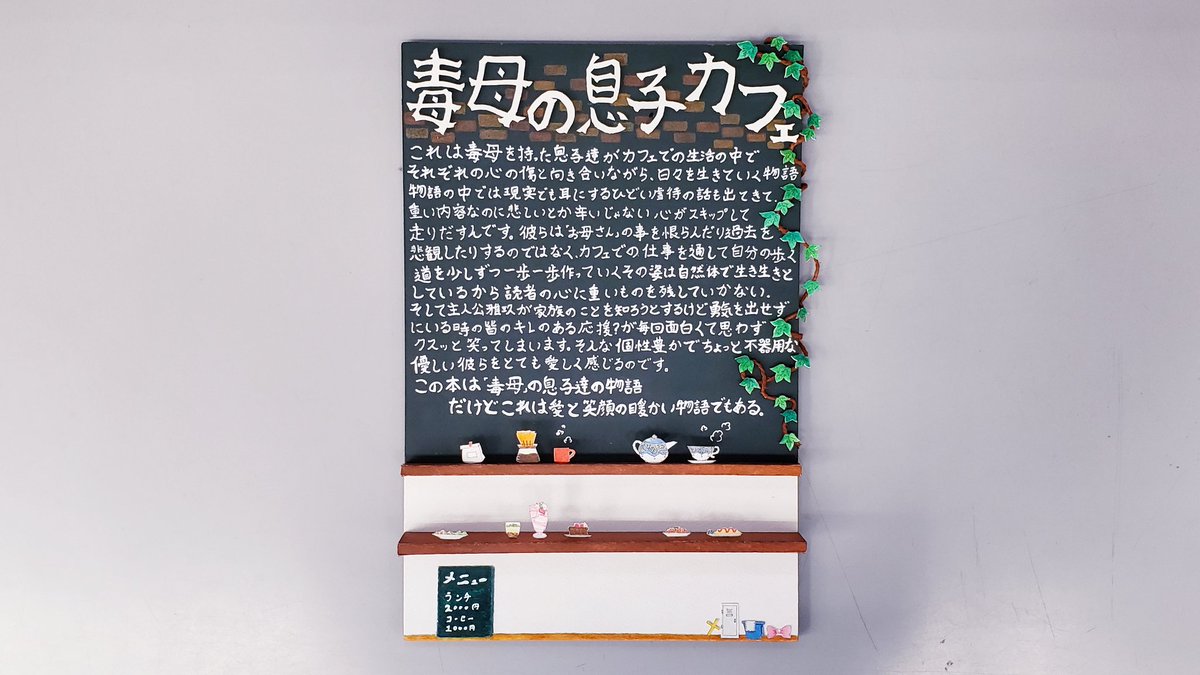 毒母の息子カフェ
これは毒母を持った息子達がカフェでの生活の中で
それぞれの心の傷と向き合いながら、日々を生きていく物語
物語の中では現実でも耳にするひどい虐待の話も出てきて
重い内容なのに悲しいとか辛いじゃない心がスキップして
走りだすんです。彼らは「お母さん」の事を恨らんだり過去を
悲観したりするのではなく、カフェでの仕事を通して自分の歩く
道を少しずつ一歩一歩作っていくその姿は自然体で生き生きと
しているから読者の心に重いものを残していかない.
そして主人公雅玖が家族のことを知ろうとするけど勇気を出せず
にいる時の皆のキレのある応援?が毎回面白くて思わず
クスッと笑ってしまいます。そんな個性豊かでちょっと不器用な
優しい彼らをとても愛しく感じるのです。
この本は「毒母」の息子達の物語
だけどこれは愛と笑顔の暖かい物語でもある。
メニュー
ランチ
2000円
コーヒー
1000円